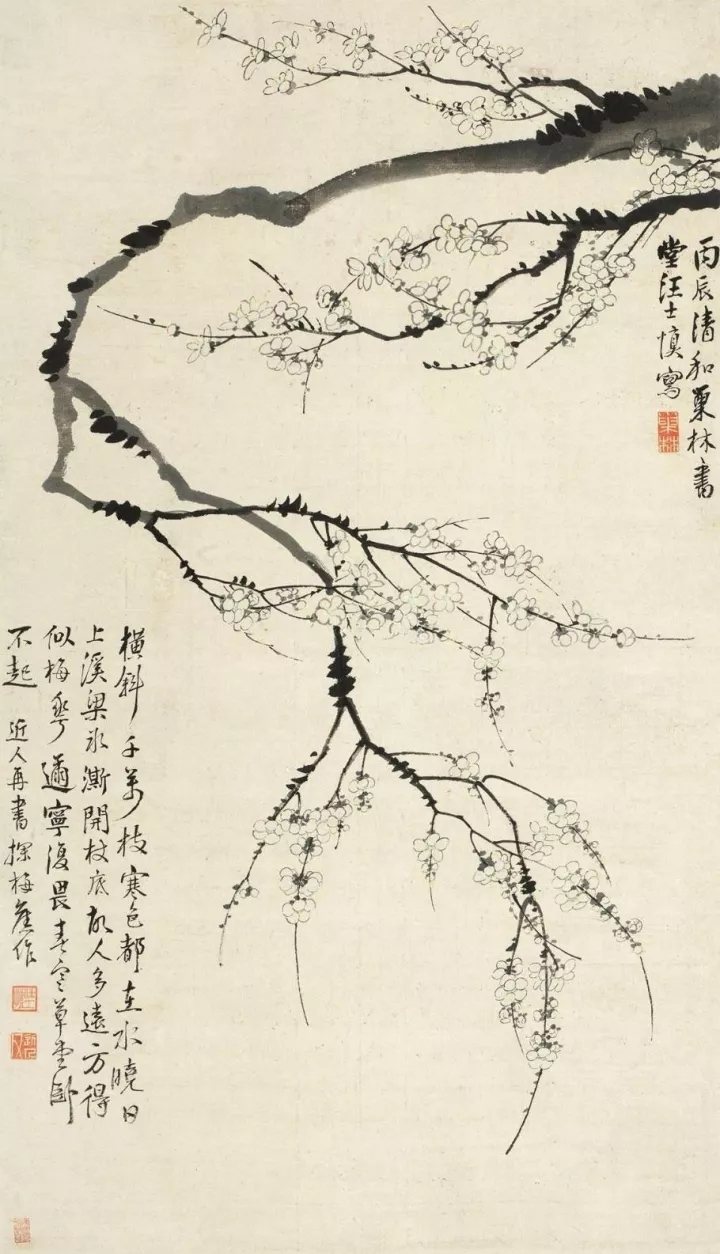 丙辰清和巢林書
堂汪士慎寫
巢林
橫斜千萬枝寒色都在水曉日
上溪梁冰澌開杖底故人多遠方得
似梅華邇寧復畏春寒草堂臥
不起 近人再書探梅舊作